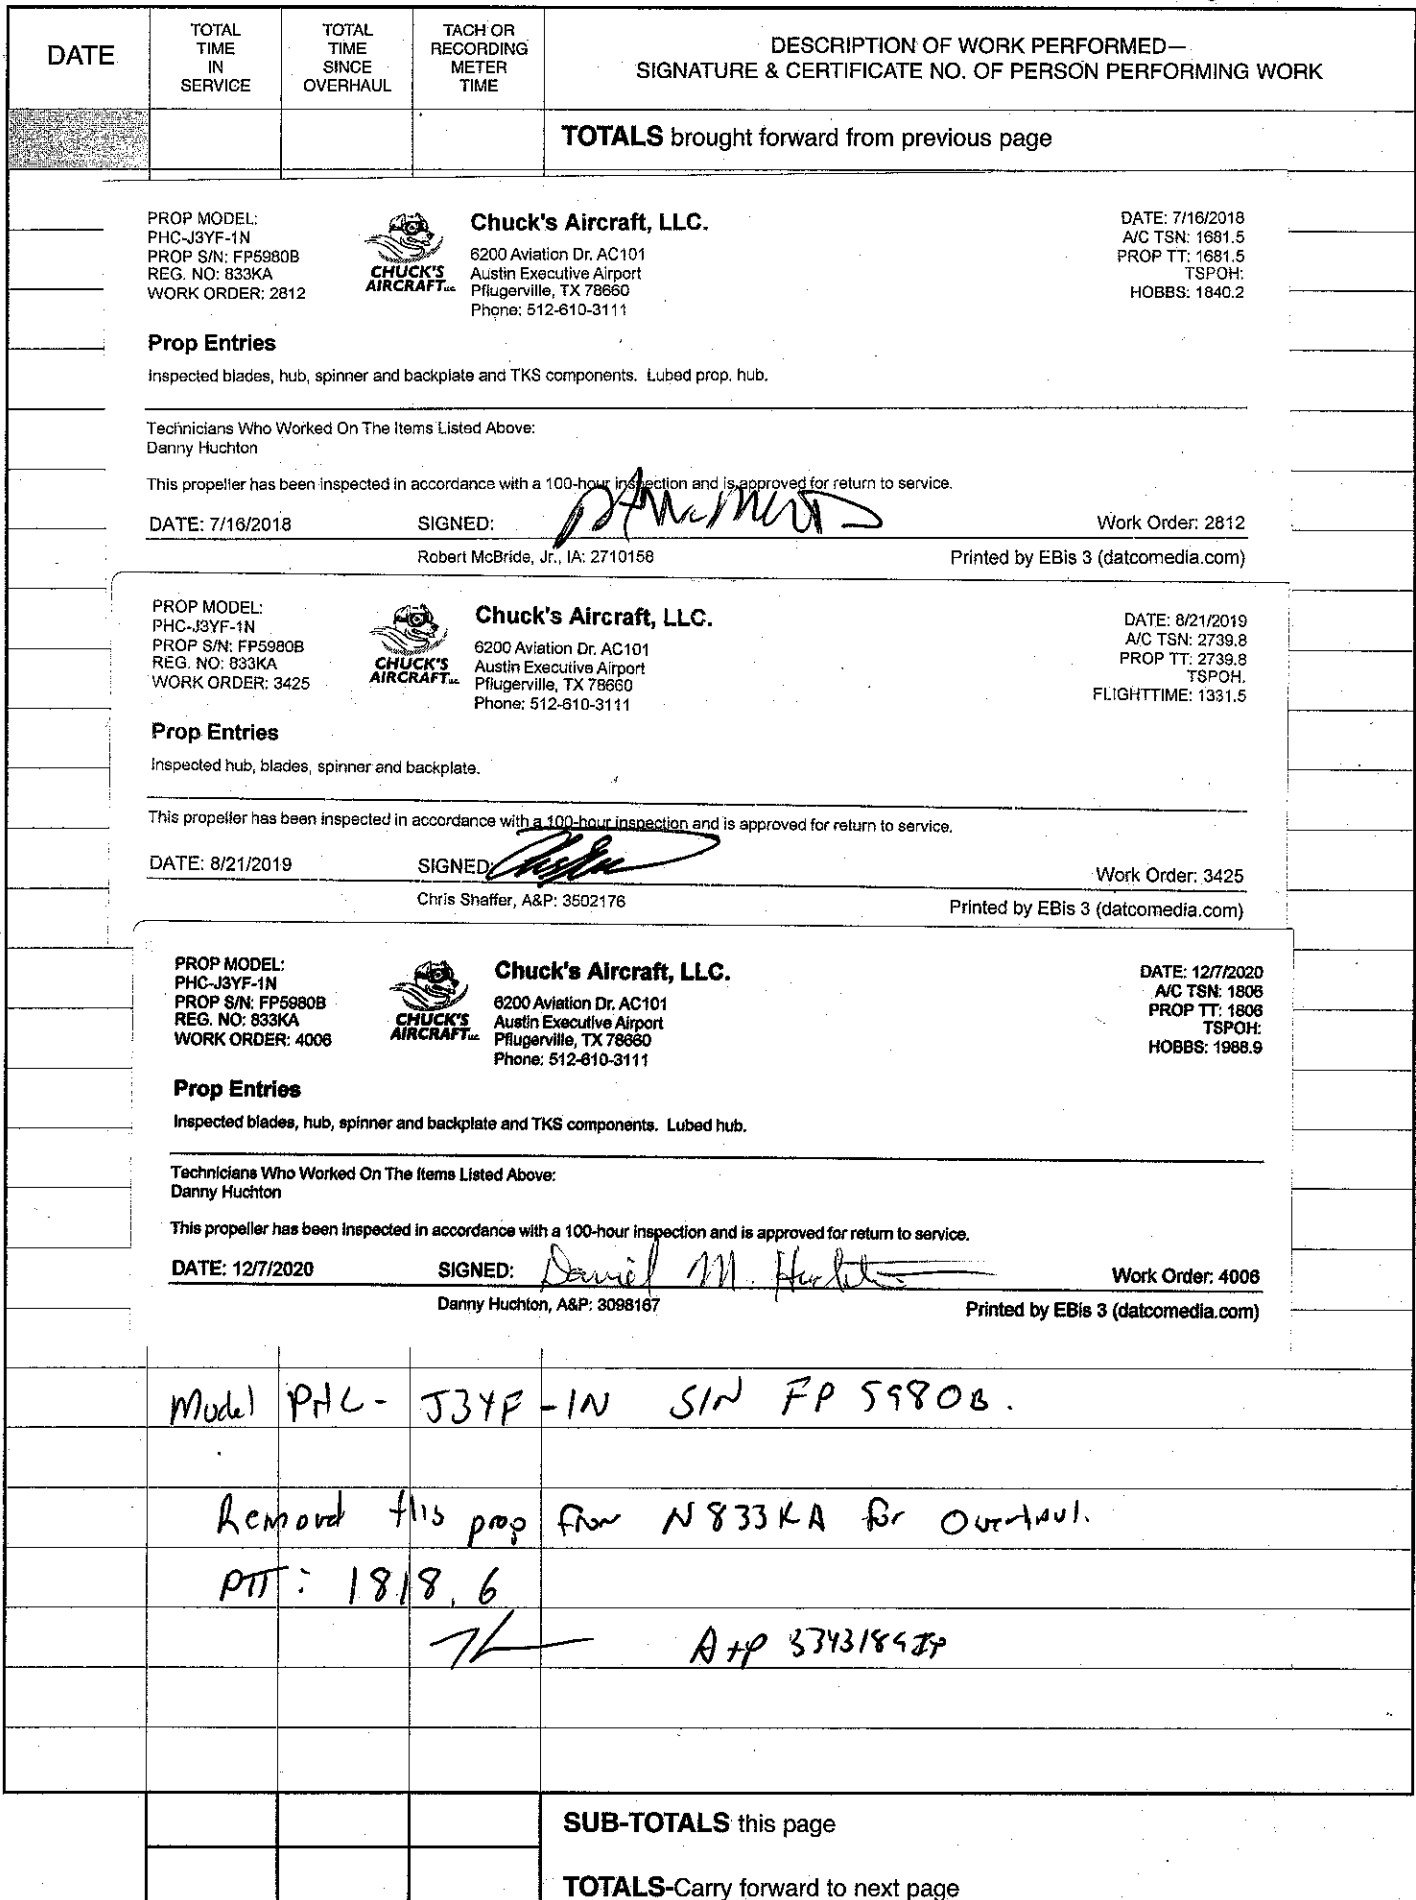 DATE
TOTAL TIME IN SERVICE
TOTAL TIME SINCE OVERHAUL
TACH OR RECORDING METER TIME
DESCRIPTION OF WORK PERFORMED—
SIGNATURE & CERTIFICATE NO. OF PERSON PERFORMING WORK
TOTALS brought forward from previous page
PROP MODEL:
PHC-J3YF-1N
PROP S/N: FP5980B
REG. NO: 833KA
WORK ORDER: 2812
CHUCK'S
AIRCRAFT LLC
Chuck's Aircraft, LLC.
6200 Aviation Dr. AC101
Austin Executive Airport
Pflugerville, TX 78660
Phone: 512-610-3111
DATE: 7/16/2018
A/C TSN: 1681.5
PROP TT: 1681.5
TSPOH:
HOBBS: 1840.2
Prop Entries
Inspected blades, hub, spinner and backplate and TKS components. Lubed prop. hub.
Technicians Who Worked On The Items Listed Above:
Danny Huchton
This propeller has been inspected in accordance with a 100-hour inspection and is approved for return to service.
DATE: 7/16/2018 SIGNED: Work Order: 2812
Robert McBride, Jr., IA: 2710158 Printed by EBis 3 (datcomedia.com)
PROP MODEL:
PHC-J3YF-1N
PROP S/N: FP5980B
REG. NO: 833KA
WORK ORDER: 3425
CHUCK'S
AIRCRAFT LLC
Chuck's Aircraft, LLC.
6200 Aviation Dr. AC101
Austin Executive Airport
Pflugerville, TX 78660
Phone: 512-610-3111
DATE: 8/21/2019
A/C TSN: 2739.8
PROP TT: 2739.8
TSPOH.
FLIGHTTIME: 1331.5
Prop Entries
Inspected hub, blades, spinner and backplate.
This propeller has been inspected in accordance with a 100-hour inspection and is approved for return to service.
DATE: 8/21/2019 SIGNED: Work Order: 3425
Chris Shaffer, A&P: 3502176 Printed by EBis 3 (datcomedia.com)
PROP MODEL:
PHC-J3YF-1N
PROP S/N: FP5980B
REG. NO: 833KA
WORK ORDER: 4006
CHUCK'S
AIRCRAFT LLC
Chuck's Aircraft, LLC.
6200 Aviation Dr. AC101
Austin Executive Airport
Pflugerville, TX 78660
Phone: 512-610-3111
DATE: 12/7/2020
A/C TSN: 1806
PROP TT: 1806
TSPOH:
HOBBS: 1988.9
Prop Entries
Inspected blades, hub, spinner and backplate and TKS components. Lubed hub.
Technicians Who Worked On The Items Listed Above:
Danny Huchton
This propeller has been inspected in accordance with a 100-hour inspection and is approved for return to service.
DATE: 12/7/2020 SIGNED: Daniel M. Huchton Work Order: 4006
Danny Huchton, A&P: 3098167 Printed by EBis 3 (datcomedia.com)
Model PHC-J3YF-1N S/N FP5980B.
Removed this prop from N833KA for Overhaul.
PTT: 1818.6
A+P
SUB-TOTALS this page
TOTALS-Carry forward to next page